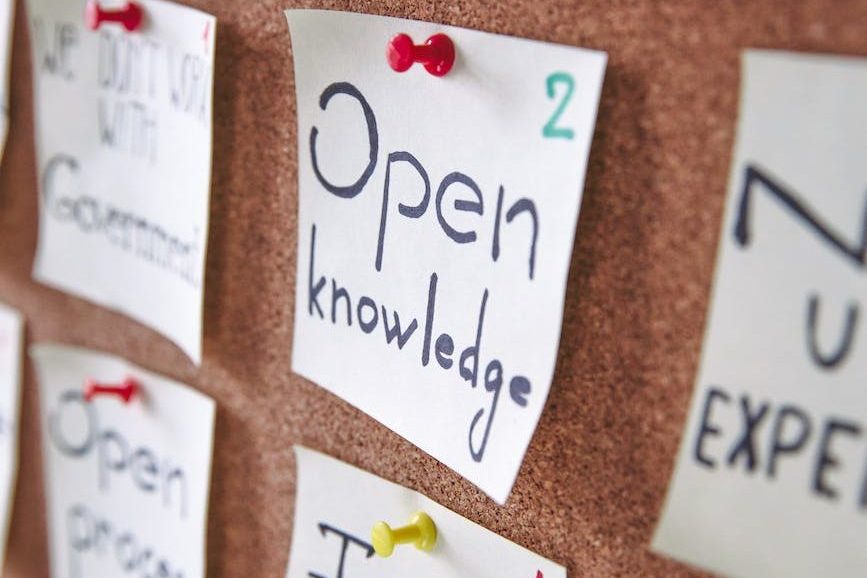 1
We DON'T WORK
WITH
Government
2
Open
knowledge
Open
I
EXPE